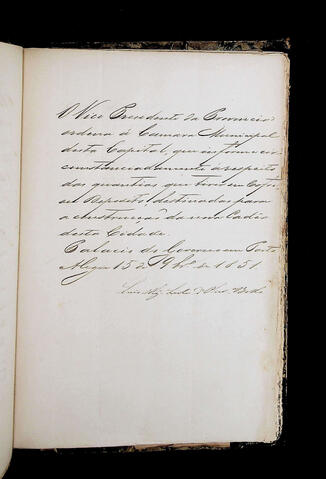 O Vice Presidente da Provincia
ordena á Camara Municipal
desta Capital, que informe cir
constanciadamente á respeito
das quantias que tem em Cofre,
ou Deposito, destinadas para
a construcção da nova Cadêa
desta Cidade.
Palacio do Governo em Porto
Alegre 15 de 9br.º de 1851.
Luis Alz. Leite d'Olivr.ª Bello